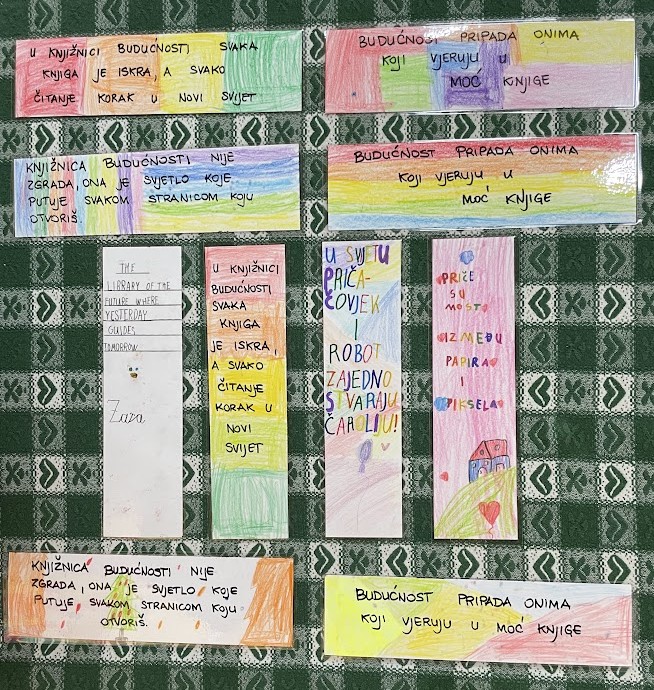 U KNJIŽNICI BUDUĆNOSTI SVAKA
KNJIGA JE ISKRA, A SVAKO
ČITANJE KORAK U NOVI SVIJET
BUDUĆNOST PRIPADA ONIMA
KOJI VJERUJU U
MOĆ KNJIGE
KNJIŽNICA BUDUĆNOSTI NIJE
ZGRADA, ONA JE SVJETLO KOJE
PUTUJE SVAKOM STRANICOM KOJU
OTVORIŠ.
BUDUĆNOST PRIPADA ONIMA
KOJI VJERUJU U
MOĆ KNJIGE
THE
LIBRARY OF THE
FUTURE WHERE
YESTERDAY
GUIDES
TOMORROW
Zaza
U KNJIŽNICI
BUDUĆNOSTI
SVAKA
KNJIGA
JE ISKRA,
A SVAKO
ČITANJE
KORAK U
NOVI
SVIJET
U SVIJETU
PRIČA-
ČOVJEK
I
ROBOT
ZAJEDNO
STVARAJU
ČAROLIJU!
PRIČE
SU
MOST
IZMEĐU
PAPIRA
I
PIKSELA
KNJIŽNICA BUDUĆNOSTI NIJE
ZGRADA, ONA JE SVJETLO KOJE
PUTUJE SVAKOM STRANICOM KOJU
OTVORIŠ.
BUDUĆNOST PRIPADA ONIMA
KOJI VJERUJU U MOĆ KNJIGE